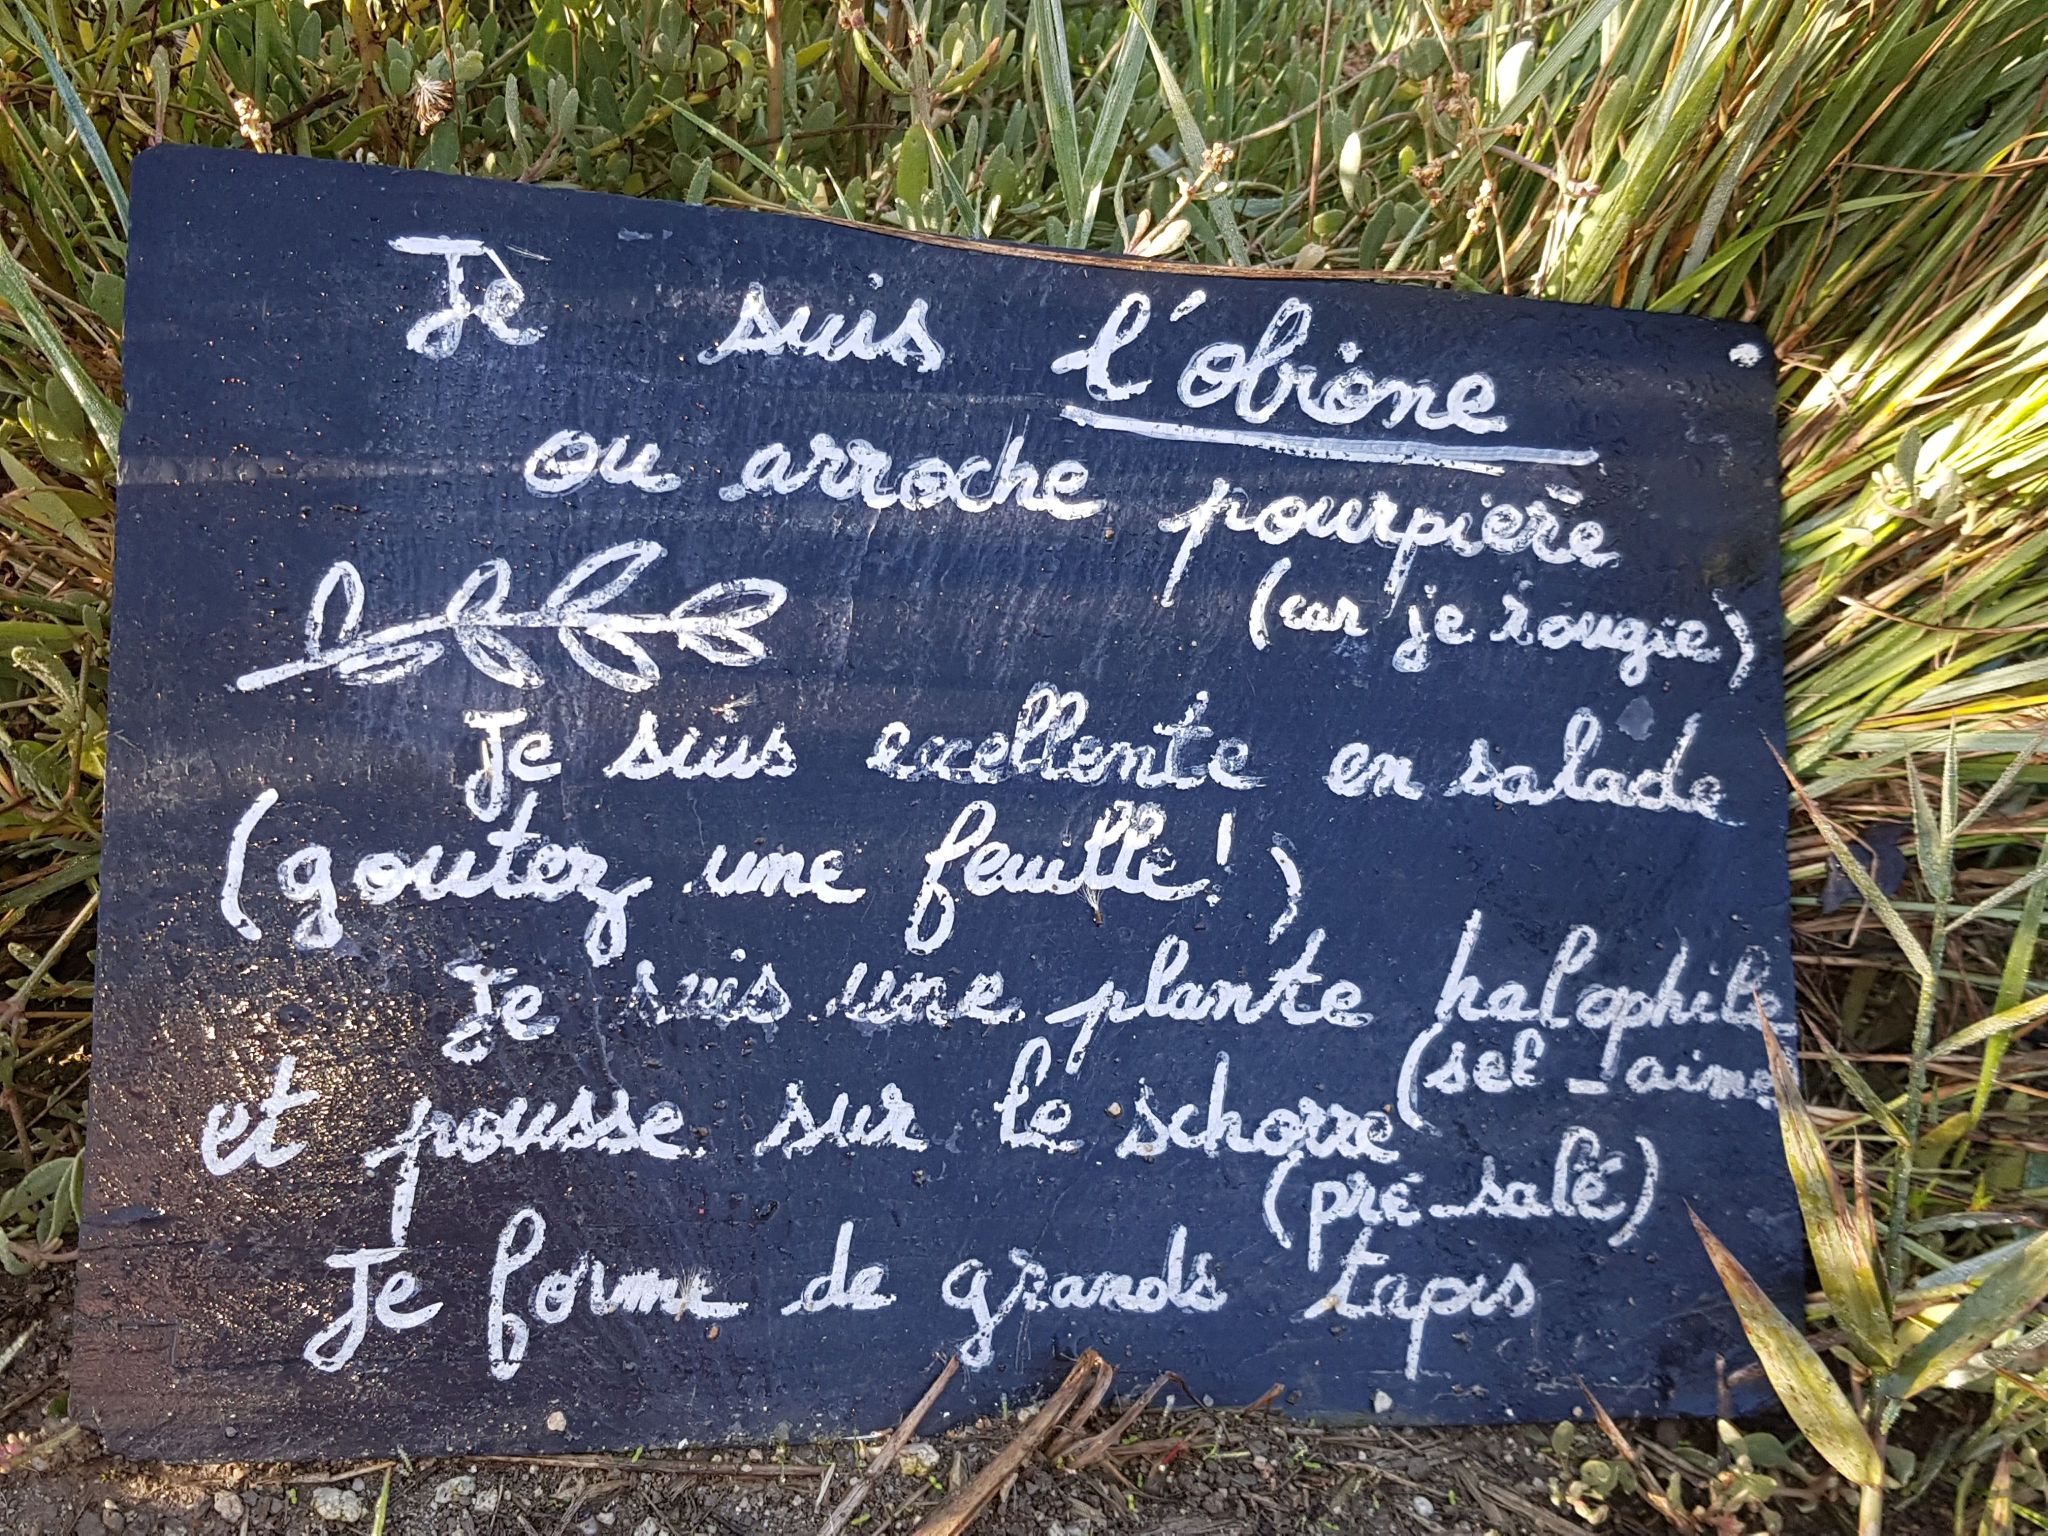 Je suis l'obione
ou arroche pourpière
(car je rougie)
Je suis excellente en salade
(goutez une feuille!)
Je suis une plante halophile
(sel-aime
et pousse sur le schorre
(pré-salé)
Je forme de grands tapis